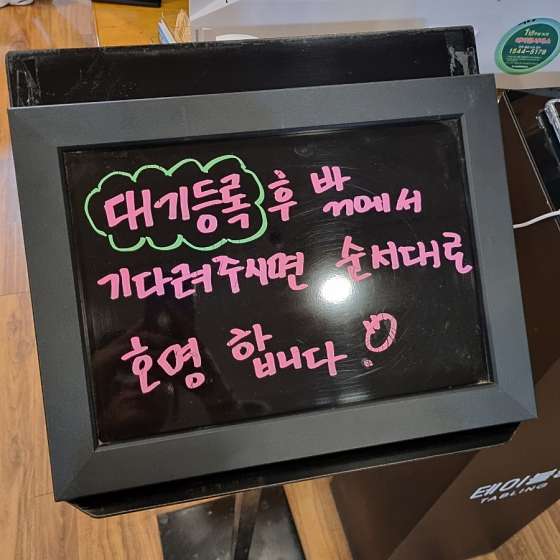 대기등록 후 밖에서
기다려주시면 순서대로
호명 합니다
1544-5178
테이블
TABLING